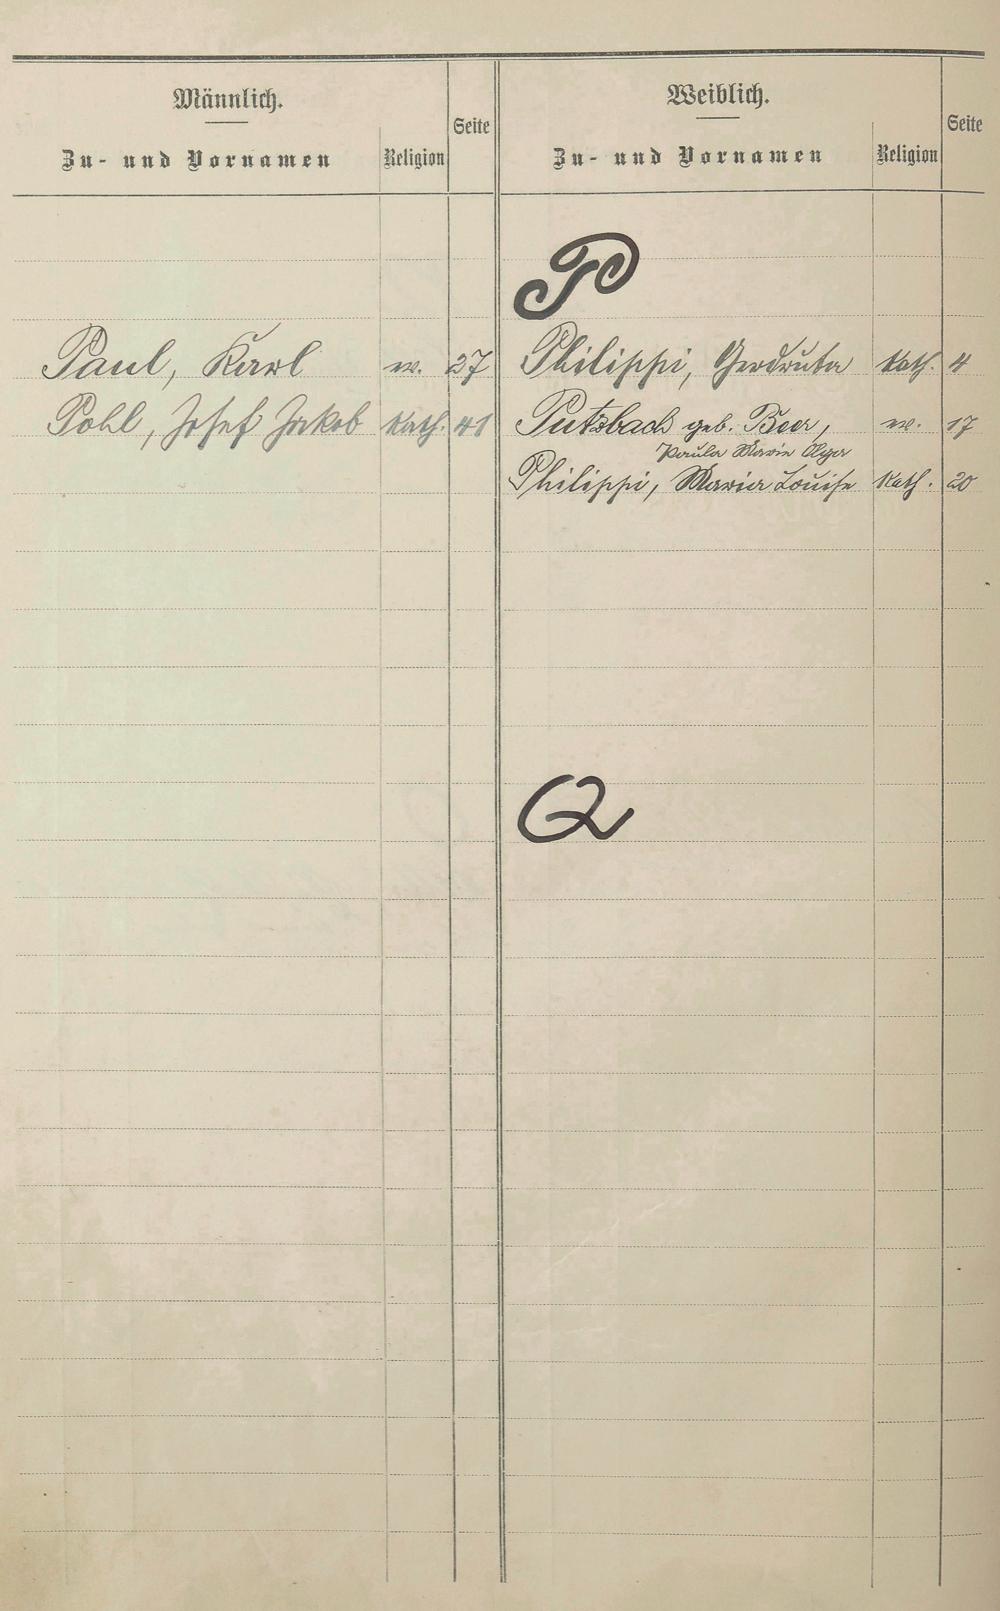 Männlich.
Zu- und Vornamen
Religion
Seite
Weiblich.
Zu- und Vornamen
Religion
Seite
P
Paul, Karl ev. 37
Philippi, Gerdruta kath. 4
Pohl, Josef Jakob kath. 41
Putzbach geb. Beer, ev. 17
Paula Marie Olga
Philippi, Maria Louise kath. 20
Q